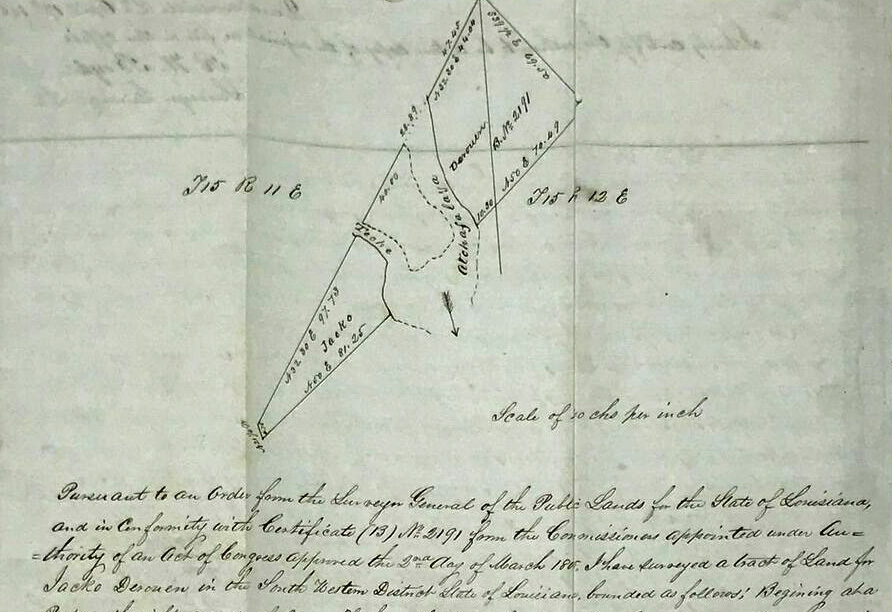 47.45
N32.30E 44.04
S39½E 69.50
28.89
Derouen
B. No. 2191
T15 R 11 E
40.00
T15 R 12 E
10.30
N50E 70.49
Atchafalaya
Teche
N32.30E 97.73
Jacko
N50E 81.25
Scale of 50 chs per inch
Pursuant to an Order form the Surveyor General of the Public Lands for the State of Louisiana,
and in Conformity with Certificate (B) No 2191 form the Commissioners appointed under Au=
=thority of an Act of Congress approved the 2nd day of March 1805. I have surveyed a tract of Land for
Jacko Derouen in the South Western District State of Louisian, bounded as follows; Begining at a